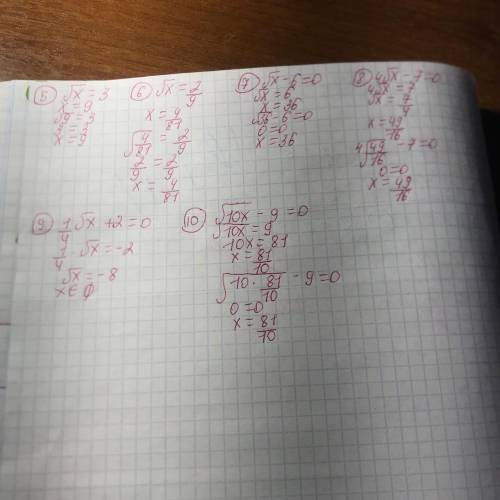 5 √x = 3
x = 9
√9 = 3
3 = 3
x = 9
6 √x = 2/9
x = 4/81
√(4/81) = 2/9
2/9 = 2/9
x = 4/81
7 √x - 6 = 0
√x = 6
x = 36
√36 - 6 = 0
0 = 0
x = 36
8 4√x - 7 = 0
4√x = 7
√x = 7/4
x = 49/16
4√(49/16) - 7 = 0
0 = 0
x = 49/16
9 1/4 √x + 2 = 0
1/4 · √x = -2
√x = -8
x ∈ ∅
10 √10x - 9 = 0
√10x = 9
10x = 81
x = 81/10
√(10 · 81/10) - 9 = 0
0 = 0
x = 81/10